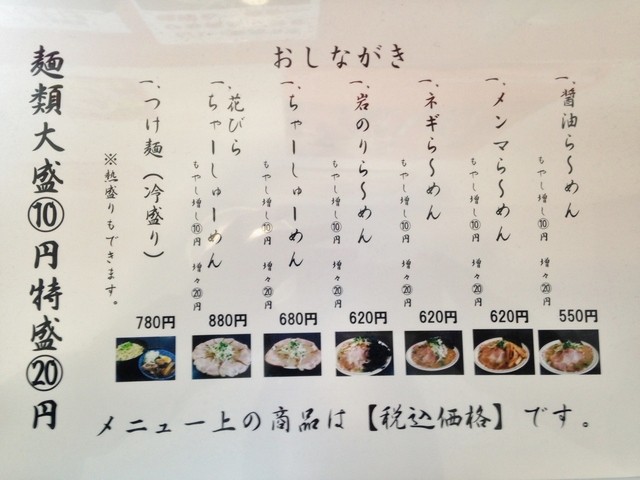 おしながき
一、醤油ら～めん
もやし増し⑩円 増々⑳円
550円
一、メンマら～めん
もやし増し⑩円 増々⑳円
620円
一、ネギら～めん
もやし増し⑩円 増々⑳円
620円
一、岩のりら～めん
もやし増し⑩円 増々⑳円
620円
一、ちゃーしゅーめん
もやし増し⑩円 増々⑳円
680円
一、花びら
ちゃーしゅーめん
もやし増し⑩円 増々⑳円
880円
一、つけ麺(冷盛り)
※熱盛りもできます。
780円
麺類大盛⑩円特盛⑳円
メニュー上の商品は【税込価格】です。